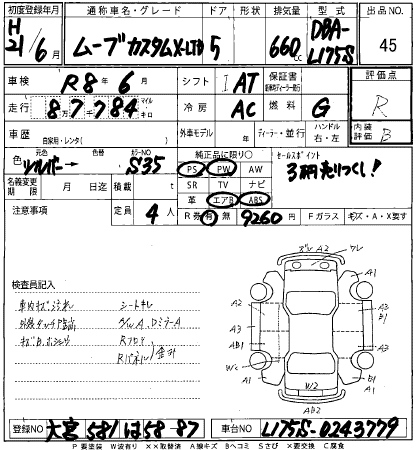 初度登録年月 通称車名・グレード ドア 形状 排気量 型式 出品NO.
H 21/6月 ムーブカスタムX-LTD 5 660cc DBA-L175S 45
車検 R8年6月 シフト I AT 保証書 評価点
走行 87784 マイル キロ 冷房 AC 燃料 G R
車歴 自家用・レンタ( ) 外車モデル 年 ディーラー・並行 ハンドル 右・左 内装評価 B
色 元色 シルバー→ 色替 カラーNO S35 純正品に限り○ セールスポイント
PS PW AW 3万円売りつくし!
名義変更期限 月 日迄 積載 t SR TV ナビ
革 エアB ABS
注意事項 定員 4人 R券 有 無 9260円 Fガラス キズ・A・X要す
検査員記入
車内キズ汚れ シートキレ
Rフロア
Rパネル 金升
グレ A2 ワレ
A1
A2 A3 B1
A3 A3
AB1
Wc
A1 W2 B1 A1
AB2
登録NO 大宮 581 は 58-87 車台NO L175S-0243779
P要塗装 W波有り XX取替済 A線キズ Bヘコミ Sさび X要交換 C腐食